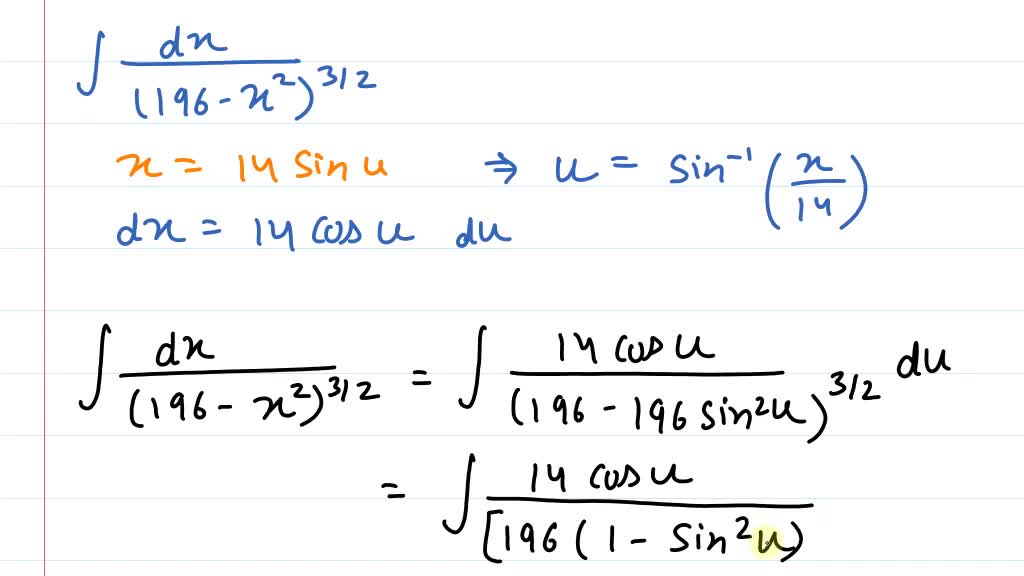 ∫ dx / (196 - x²)^3/2
x = 14 sin u ⇒ u = sin⁻¹ (x/14)
dx = 14 cos u du
∫ dx / (196 - x²)^3/2 = ∫ 14 cos u / (196 - 196 sin²u)^3/2 du
= ∫ 14 cos u / [196 ( 1 - sin²u)